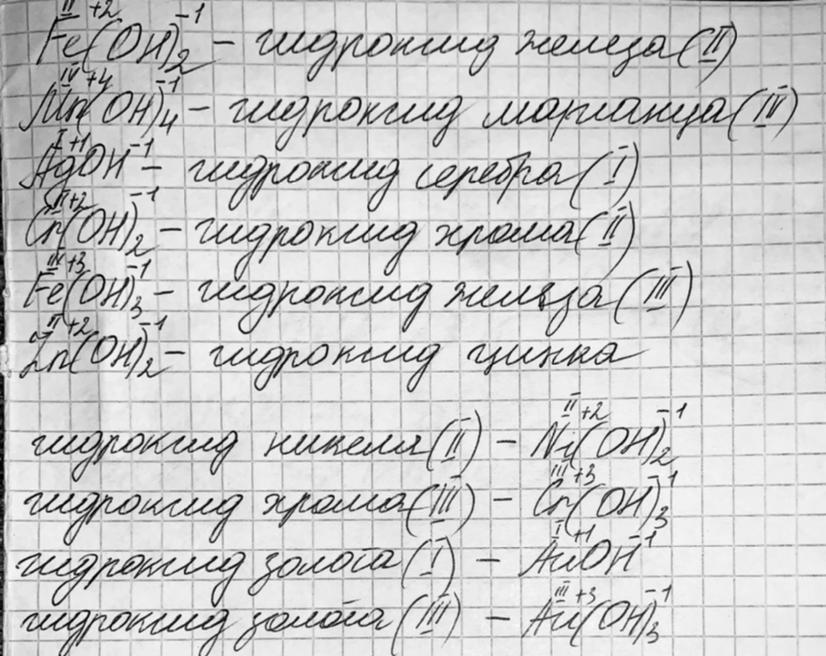 Fe(OH)₂ – гидроксид железа (II)
Mn(OH)₄ – гидроксид марганца (IV)
AgOH – гидроксид серебра (I)
Cr(OH)₂ – гидроксид хрома (II)
Fe(OH)₃ – гидроксид железа (III)
Zn(OH)₂ – гидроксид цинка
гидроксид никеля (II) – Ni(OH)₂
гидроксид хрома (III) – Cr(OH)₃
гидроксид золота (I) – AuOH
гидроксид золота (III) – Au(OH)₃